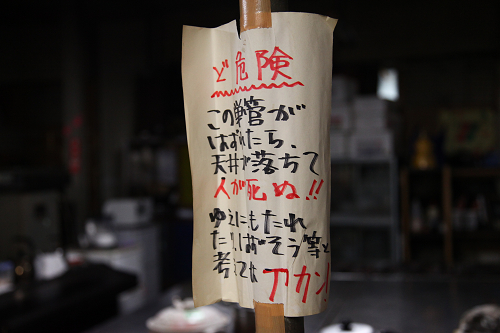 ど危険
この単管が
はずれたら、
天井が落ちて
人が死ぬ!!
ゆえにもたれ
たり、はずそう等と
考えては アカン!